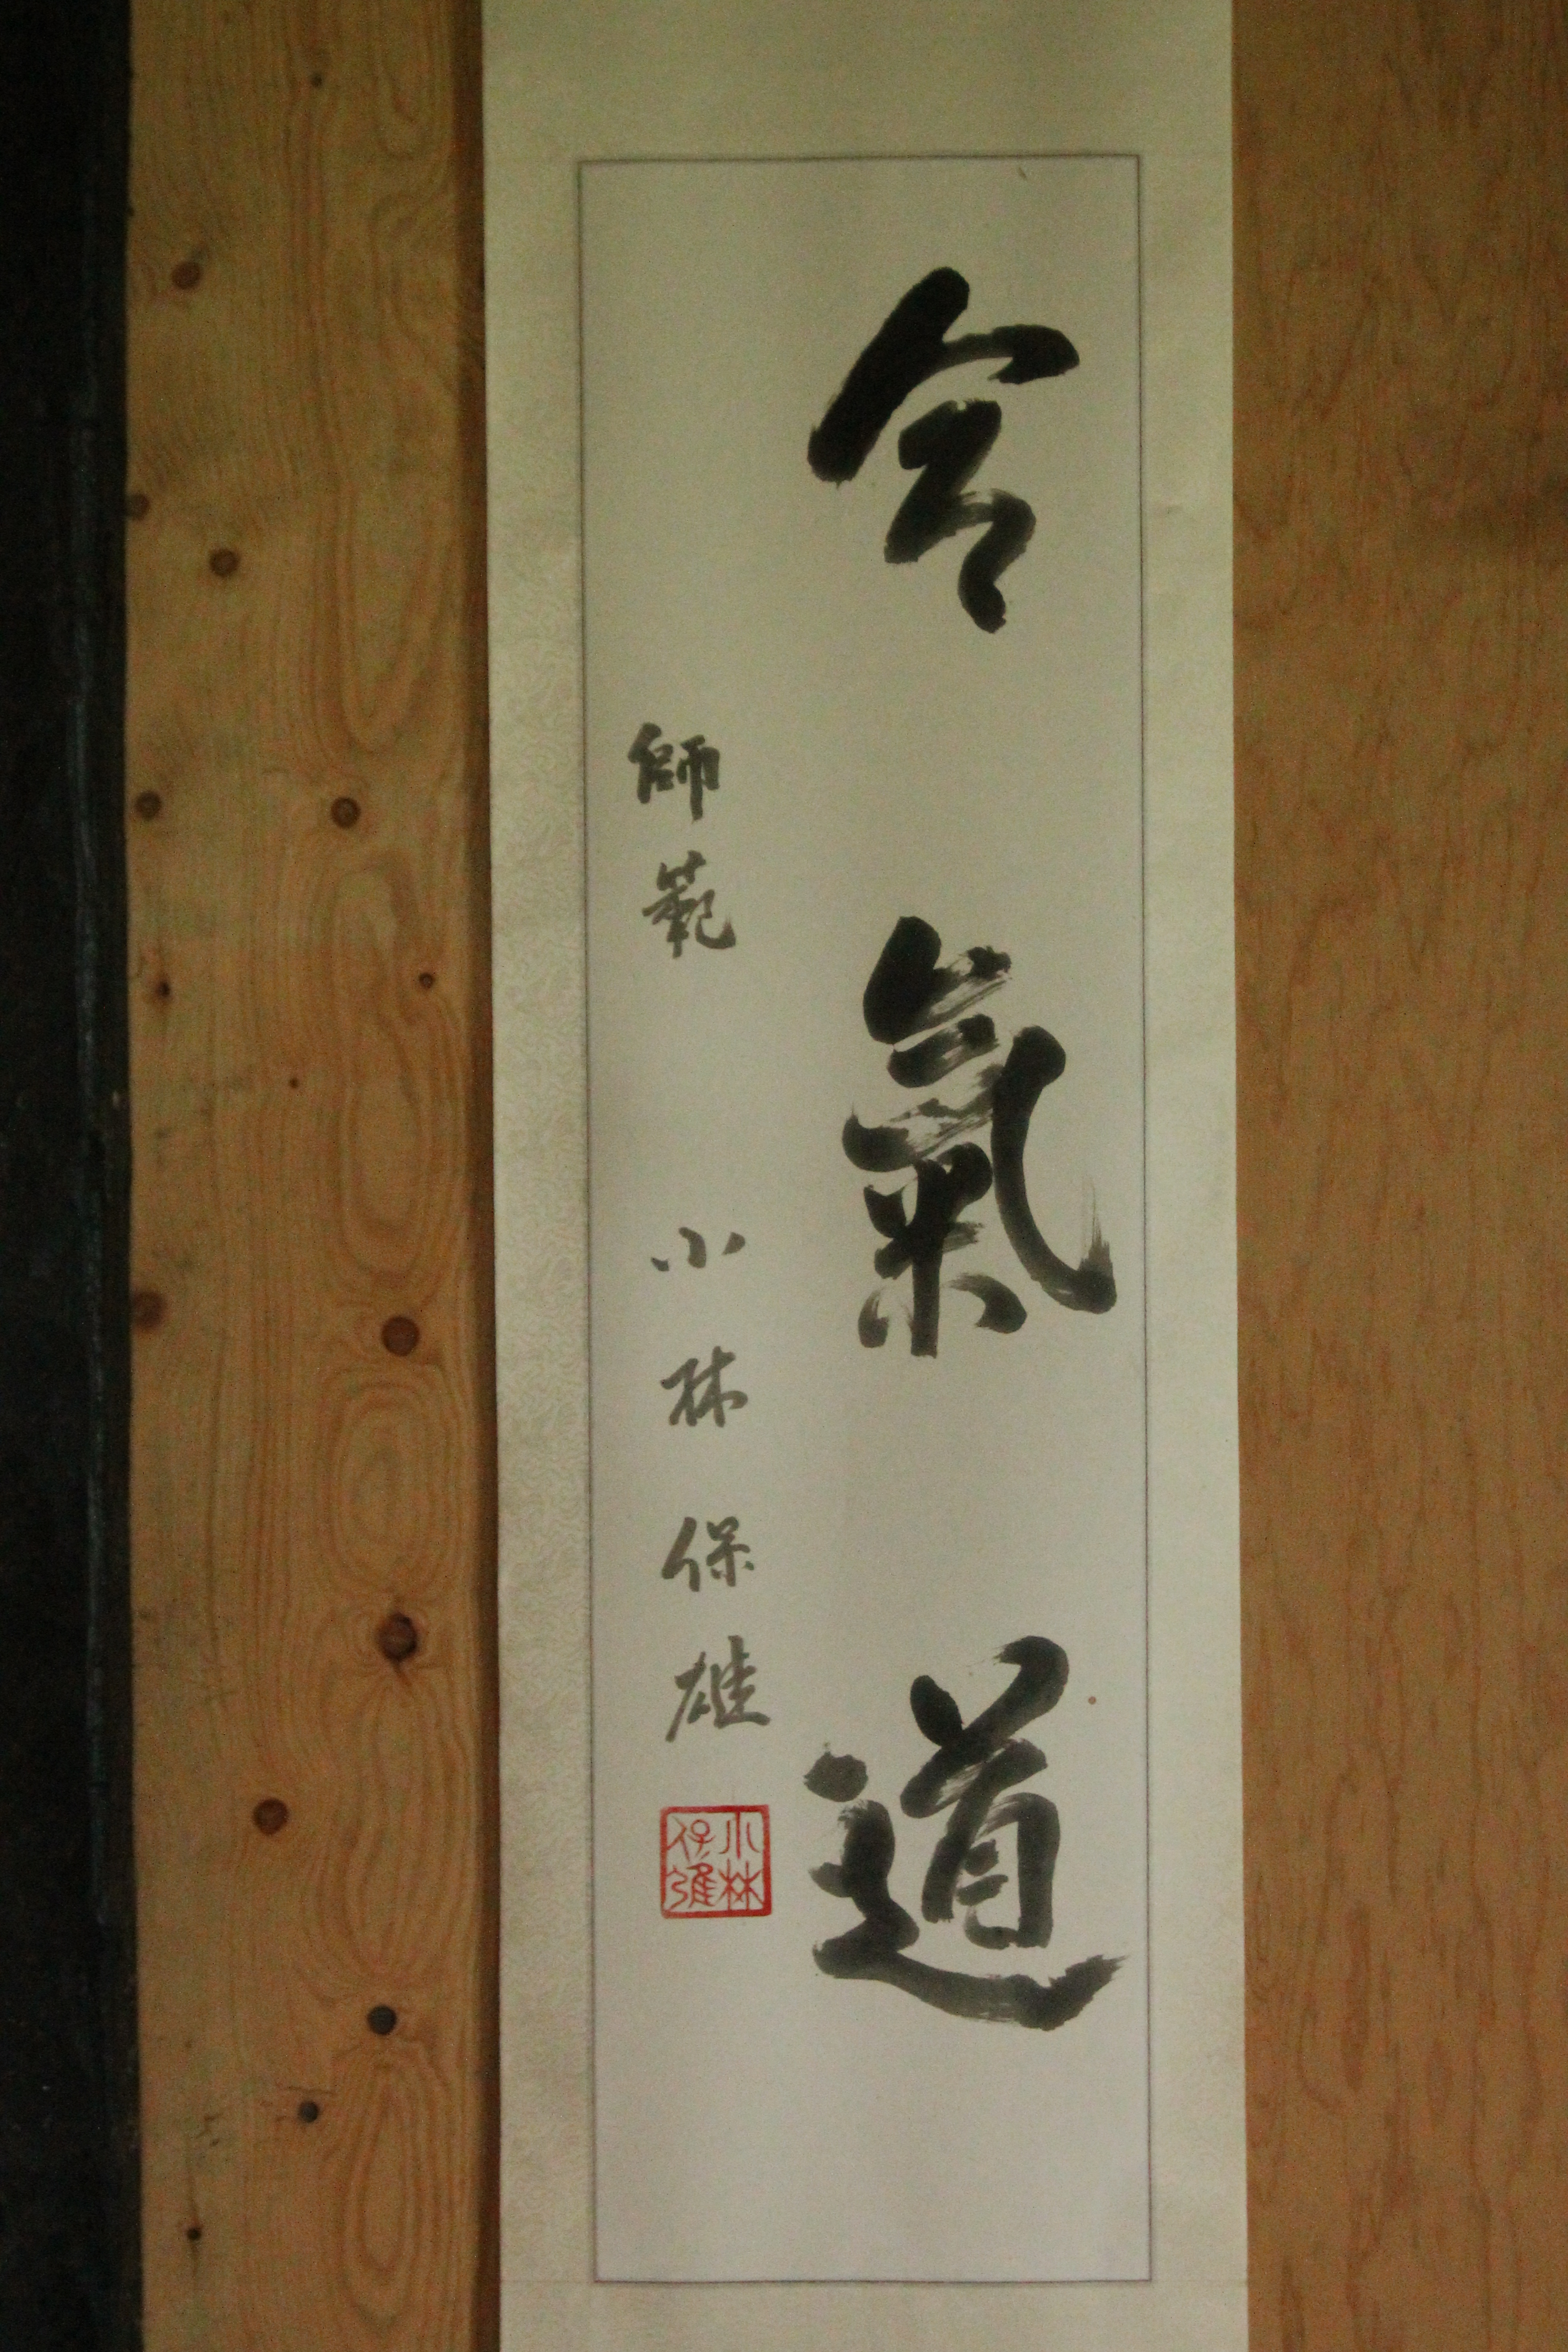 合氣道
師範 小林保雄
小林
保雄